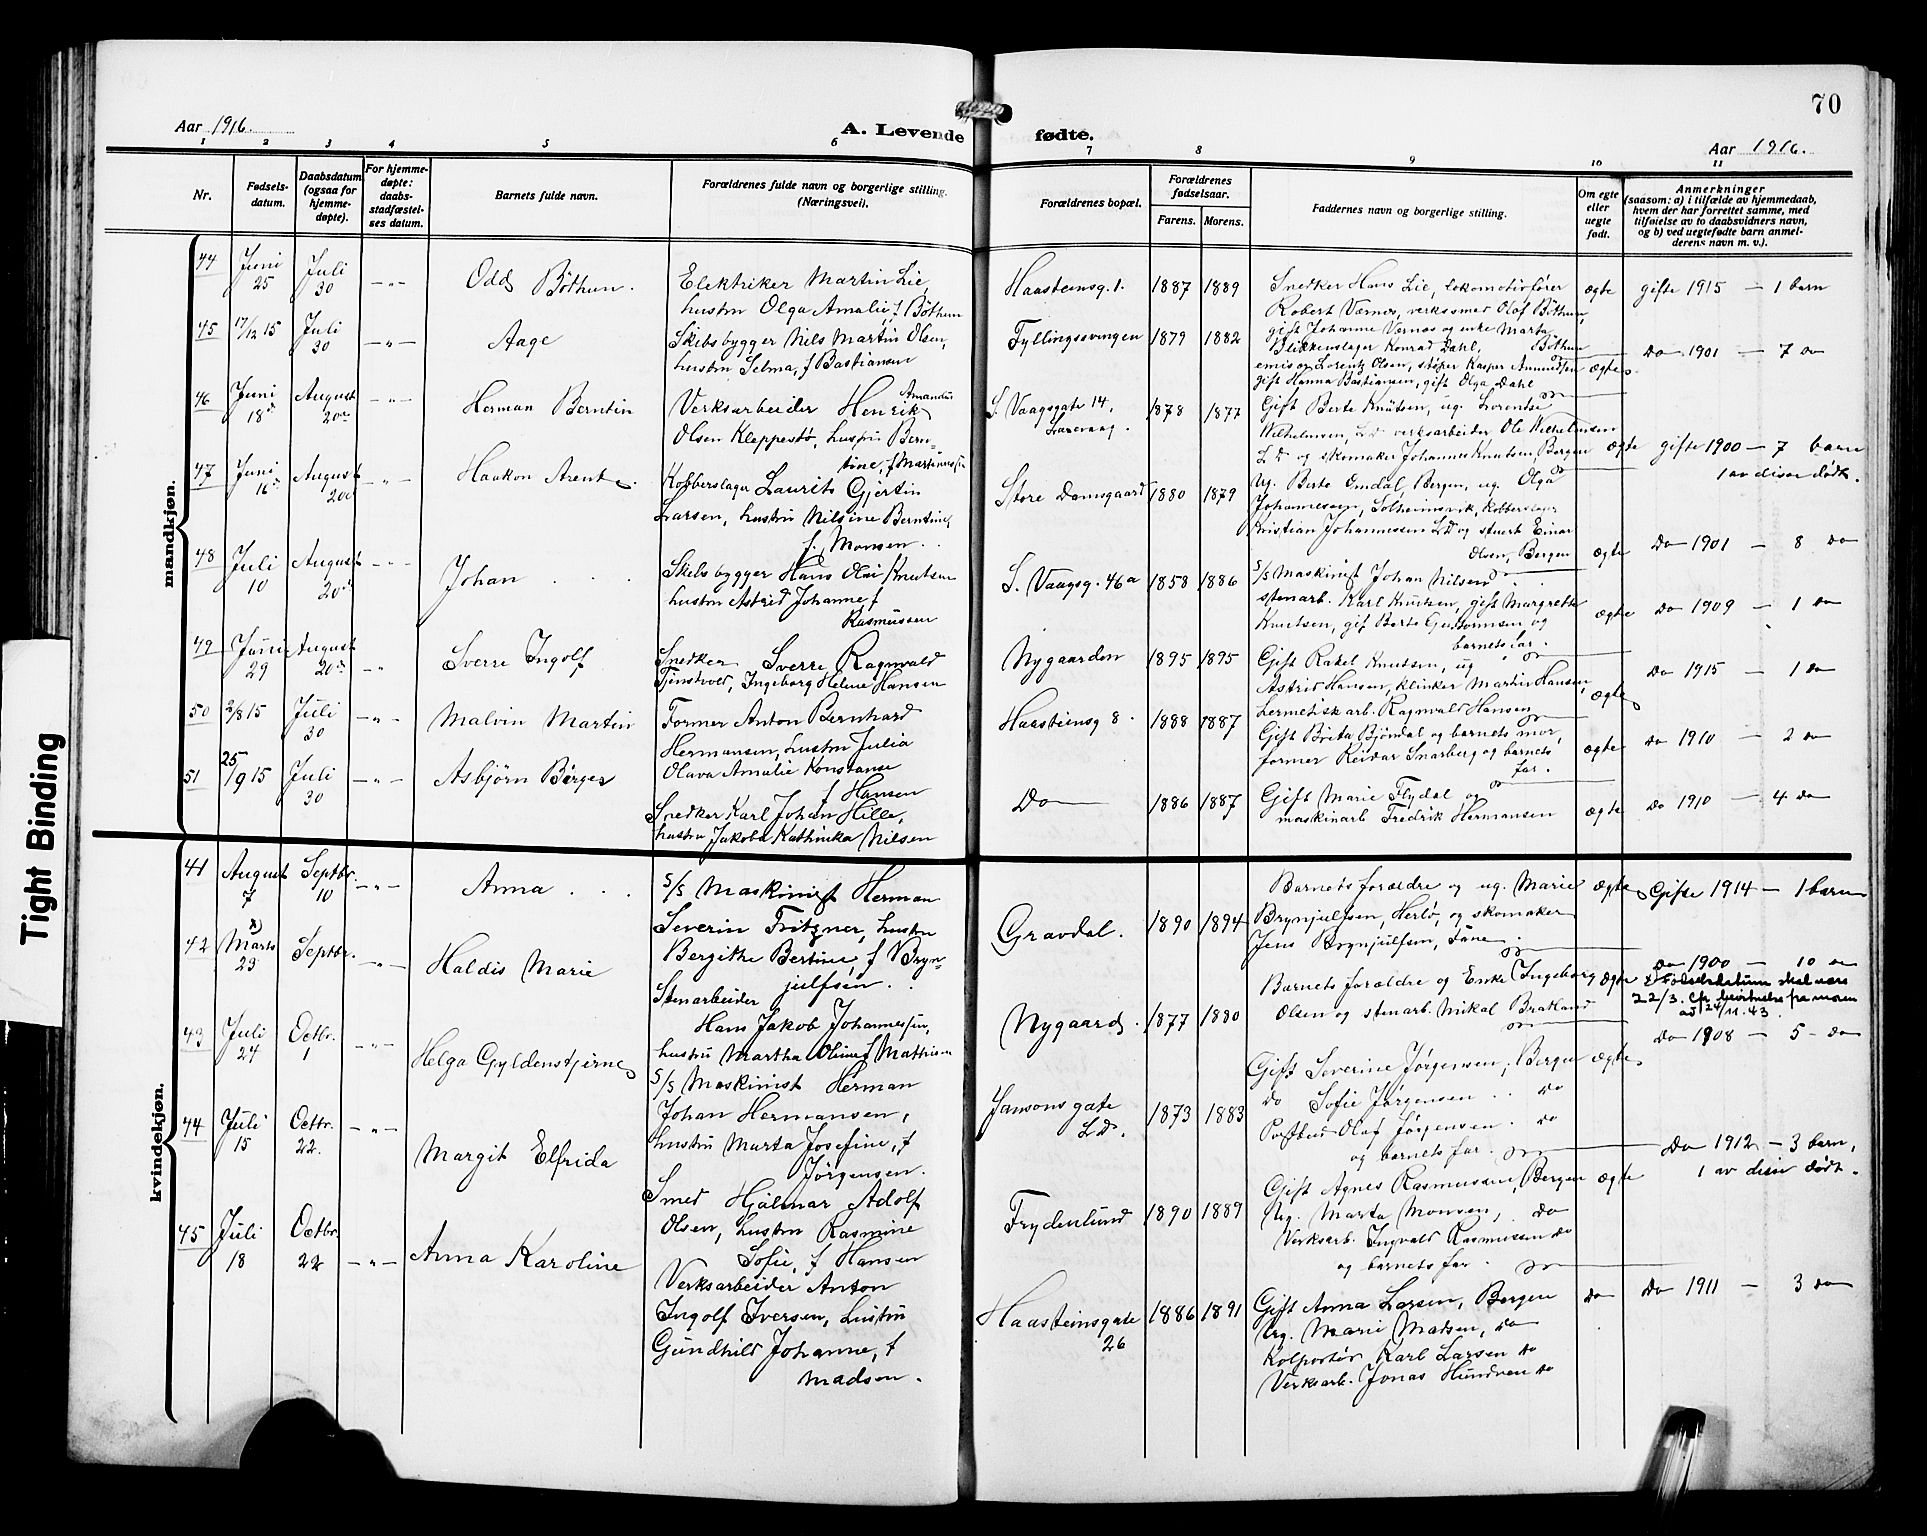 70
Aar 1916.
A. Levende fødte.
Aar 1916.
1 2 3 4 5 6 7 8 9 10 11
Nr.
Fødsels-
datum.
Daabsdatum
(ogsaa for
hjemme-
døpte).
For hjemme-
døpte:
daabs-
stadfæstel-
ses datum.
Barnets fulde navn.
Forældrenes fulde navn og borgerlige stilling.
(Næringsvei).
Forældrenes bopæl.
Forældrenes
fødselsaar.
Farens. Morens.
Faddernes navn og borgerlige stilling.
Om egte
eller
uegte
født.
Anmerkninger
(saasom: a) i tilfælde av hjemmedaab,
hvem der har forrettet samme, med
tilføielse av to daabsvidners navn,
og b) ved uegtefødte barn anmel-
derens navn m. v.).
mandkjøn.
44 Juni 25 Juli 30 -"- Odd Böthun.
Elektriker Martin Lie,
hustru Olga Amalie, f Böthun
Haasteinsg. 1. 1887 1889
Snedker Hans Lie, lokomotivfører
Robert Værnes, verksmed Olaf Böthun,
gift Johanne Vernes og enke Marta
Böthun
ægte gifte 1915 – 1 barn
45 17/12 15 Juli 30 -"- Aage
Skibsbygger Nils Martin Olsen,
hustru Selma, f Bastiansen
Fyllingssvingen 1879 1882
Blikkenslager Konrad Dahl,
Lorentz Olsen, støper Kasper Amundsen
gift Hanna Bastiansen, gift Olga Dahl
ægte Do 1901 – 7 do
46 Juni 18d August 20de -"- Herman Berntin
Verksarbeider Henrik Amandus
Olsen Kleppestø, hustru Bern-
tine, f Martinussen
S. Vaagsgate 14, Laxevaag. 1878 1877
Gift Berte Knutsen, ug. Lorentse
Wilhelmsen, LD verksarbeider Ole Wilhelmsen
LD og skomaker Johannes Knutsen, Bergen
ægte gifte 1900 – 7 barn
1 av disse dødt.
47 Juni 16d August 20de -"- Haakon Arent
Kobberslager Laurits Gjertin
Larsen, hustru Nilsine Berntine,
f. Monsen.
Store Damsgaard 1880 1879
Ug. Berte Omdal, Bergen, ug. Olga
Johannessen, Solheimsvik, Kobberslager
Kristian Johannessen LD og stuert Einar
Olsen, Bergen
ægte Do 1901 – 8 do
48 Juli 10 August 20de -"- Johan
Skibsbygger Hans Olai Knutsen
hustru Astrid Johanne, f
Rasmussen
S. Vaagsg. 46a 1858 1886
S/S Maskinist Johan Nilsen
stenarb. Karl Knutsen, gift Margrethe
Knutsen, gif Berte Guttormsen og
barnets far.
ægte Do 1909 – 1 do
49 Juni 29 August 20de -"- Sverre Ingolf
Snedker Sverre Ragnvald
Tjenstvold, Ingeborg Helene Hansen
Nygaarden 1895 1895
Gift Rakel Knutsen, ug
Astrid Hansen, klinker Martin Hansen,
hermetiskarb. Ragnvald Hansen
ægte Do 1915 – 1 do
50 2/8 15 Juli 30 -"- Malvin Martin
Former Anton Bernhard
Hermansen, hustru Julia
Olava Amalie Konstanse
f Hansen
Haasteinsg 8. 1888 1887
Gift Brita Bjöndal og barnets mor,
former Reidar Snarberg og barnets
far.
ægte Do 1910 – 2 do
51 25/9 15 Juli 30 -"- Asbjörn Börge
Snedker Karl Johan Hille,
hustru Jakoba Kathinka Nilsen
Do 1886 1887
Gift Marie Flydal og
maskinarb Fredrik Hermansen
ægte Do 1910 – 4 do
kvindekjøn.
41 August 7 Septbr. 10 -"- Anna
S/S Maskinist Herman
Severin Fritzner, hustru
Bergithe Bertine, f Bryn-
julfsen.
Gravdal. 1890 1894
Barnets forældre og ug. Marie
Brynjulfsen, Herlø, og skomaker
Jens Brynjulfsen, Fane.
ægte Gifte 1914 – 1 barn
42 x) Marts 23 Septbr. -"- Haldis Marie
Stenarbeider
Hans Jakob Johannessen,
hustru Martha Oline, f Mathisen
Nygaard. 1877 1880
Barnets forældre og Enke Ingeborg
Olsen og stenarb. Mikal Bratland
ægte Do 1900 – 10 do
x) Fødselsdatum skal være
22/3. Cfr. bevitnelse fra moren
ad 24/11.43.
43 Juli 24 Octbr. 1 -"- Helga Gyldenstjerne
S/S Maskinist Herman
Johan Hermansen,
hustru Marta Josefine, f
Jørgensen.
Jansonsgate LD. 1873 1883
Gift Severine Jørgensen, Bergen
do Sofie Jørgensen do
Postbud Olaf Jørgensen do
og barnets far.
ægte Do 1908 – 5 – do
44 Juli 15 Octbr. 22. -"- Margit Elfrida
Smed Hjalmar Adolf
Olsen, hustru Rasmine
Sofie, f Hansen
Frydenlund 1890 1889
Gift Agnes Rasmussen, Bergen
Ug. Marta Monsen, do
Verksarb. Ingvald Rasmussen do
og barnets far.
ægte Do 1912 – 3 barn,
1 av disse dødt.
45 Juli 18 Octbr. 22 -"- Anna Karoline
Verksarbeider Anton
Ingolf Iversen, hustru
Gundhild Johanne, f
Madsen.
Haasteinsgate 26 1886 1891
Gift Anna Larsen, Bergen
Ug. Marie Madsen, do
Kolportør Karl Larsen do
Verksarb. Jonas Hundven do
do Do 1911 – 3 do
Tight Binding